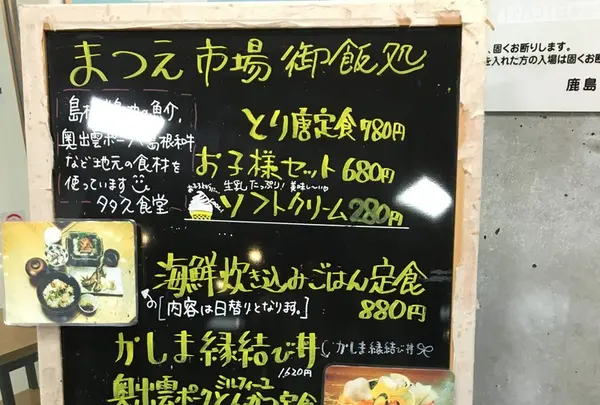 まつえ市場 御飯処
島根
魚介、
奥出雲ポーク、島根和牛
など地元の食材を
使っています
タタ久食堂
とり唐定食 780円
お子様セット 680円
生乳たっぷり! 美味し~いゆ
ソフトクリーム 280円
海鮮炊き込みごはん定食
880円
[内容は日替りとなります。]
かしま縁結び丼
かしま縁結び丼
1,620円
ミルフィーユ
奥出雲ポークとんかつ定食
、固くお断りします。
を入れた方の入場は固くお断
鹿島